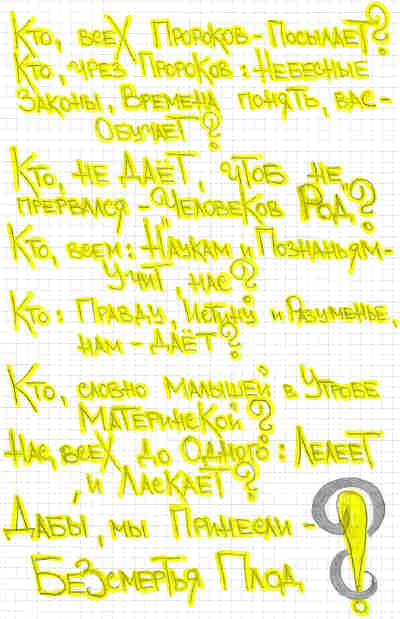 Кто, всеХ Пророков - Посылает?
Кто, чрез Пророков: Небесные
Законы, Времена понять, вас -
Обучает?
Кто, не Даёт, чтоб не
прервался - Человеков Род?
Кто, всем: Наукам и Познаньям -
Учит, нас?
Кто: Правду, Истину и Разуменье,
нам - даёт?
Кто, словно Малышей в Утробе
Материнской?
Нас, всеХ до Одного: Лелеет
и Ласкает?
Дабы, мы Принесли -
Безсмертья Плод
?!